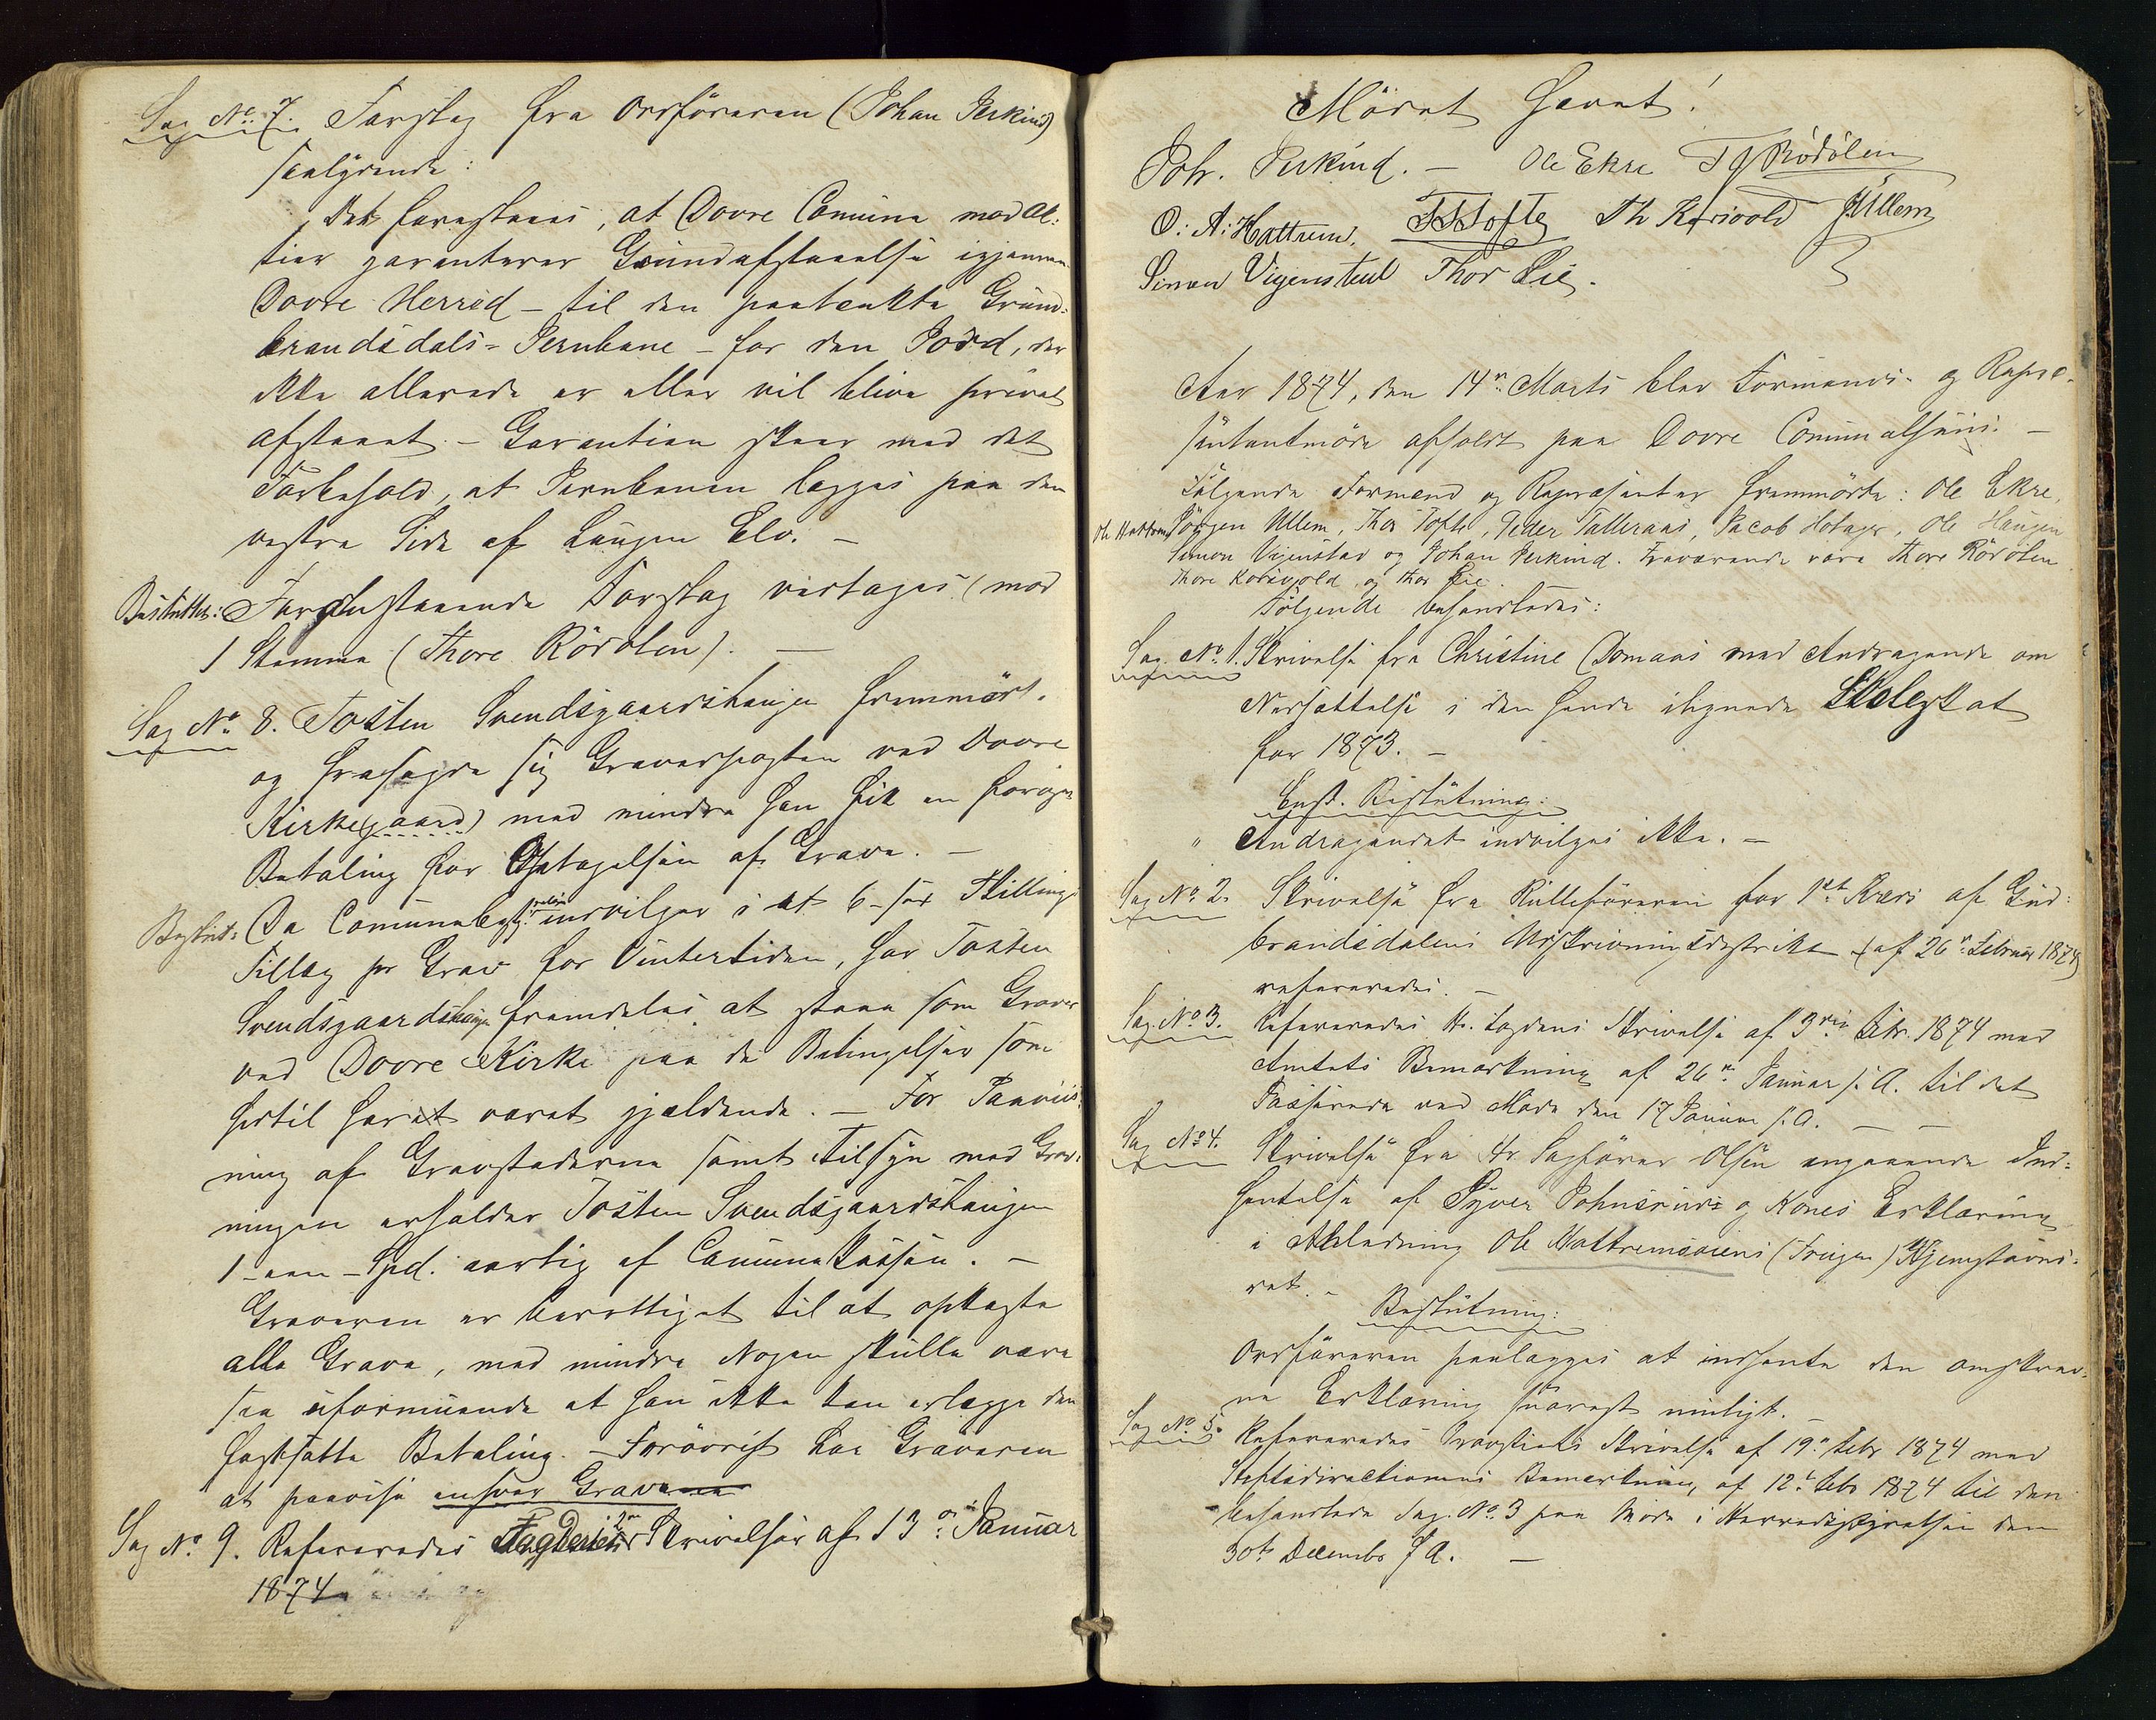 Sag No. 7. Forslag fra Ordföreren (Johan Jerkind)
saalydende:
Det foreslaaes, at Dovre Comune med Al-
tier garanterer Grundafstaaelse igjennem
Dovre Herred – til den paatænkte Gud-
brandsdals-Jernbane – for den Jord, der
ikke allerede er eller vil blive privat
afstaaet. – Garantien skeer med det
Forbehold, at Jernbanen lægges paa den
vestre Side af Laugen Elv. –
Besluttet: Foranstaaende Forslag vedtages (mod
1 Stemme (Thore Rödölen). –
Sag No 8. Tosten Svendsgaardshaugen fremmödt.
og frasagde sig Graverposten ved Dovre
Kirke(gaard) med mindre han fik en forøget
Betaling for Optagelsen af Grave. –
Beslut: Da Comunebest. indvilger i et 6 – sex Skillings
Tillæg pr Grav for Vintertiden, har Tosten
Svendsgaardshaugen fremdeles at staae som Graver
ved Dovre Kirke paa de Betingelser som
hidtil har været gjældende. – For Paaviis-
ning af Gravstederne samt Tilsyn med Grav-
ningen erholder Tosten Svendsgaardshaugen
1 – een – Spd. aarlig af Comunekassen. –
Graveren er berettiget til at opkaste
alle Grave, med mindre Nogen skulle være
saa uformuende at han ikke kan erlægge den
fastsatte Betaling. – Forövrigt har Graveren
at paavise enhver Grav
Sag No. 9. Refereredes Fogderiets Skrivelser af 13de Januar
1874
Mödet Hævet!
Joh. Jerkind. – Ole Ekre T J Rödölen
O: A: Hattrem. T T Tofte Th Korsvold J Ullem
Simen Vigenstad Thor Lie.
Aar 1874, den 14de Marts blev Formands- og Repræ-
sentantmöde afholdt paa Dovre Comunalhuus. –
Fölgende Formænd og Repræsenter fremmödte: Ole Ekre,
Ole Hattrem Jörgen Ullem, Thor Tofte, Peder Talleraas, Jacob Hotager, Ole Haugen
Simen Vigenstad og Johan Jerkind. Fraværende vare Thore Rödölen
Thore Korsvold og Thor Lie.
Fölgende behandledes:
Sag No. 1. Skrivelse fra Christine Domaas med Andragende om
Nedsættelse i den hende ilignede Skoleskat
for 1873. –
Enst. Beslutning:
" Andragendet indvilges ikke. –
Sag No 2. Skrivelse fra Rulleföreren for 1ste Kreds af Gud-
brandsdalens Udskrivningsdistrikt (af 26de Februar 1874)
refereredes. –
Sag. No 3. Refereredes Hr. Fogdens Skrivelse af 3die Febr. 1874 med
Amtets Bemærkning af 26de Januar s. A. til det
Passerede ved Möde den 17 Januar s. A. –
Sag No 4. Skrivelse fra Hr. Sagförer Olsen angaaende Ind-
hentelse af Syver Johnsruds og Kones Erklæring
i Anledning Ole Hattremsøiens (Friisen) Hjemstavns-
ret. –
Beslutning:
Ordföreren paalægges at indhente den omskrev-
ne Erklæring snarest muligt. –
Sag No 5. Refereredes Provstiets Skrivelse af 19de Febr 1874 med
Stiftsdirectionens Bemærkning af 12te Febr 1874 til den
behandlede Sag. No. 3 paa Möde i Herredsstyrelsen den
30te Decembr f A. –